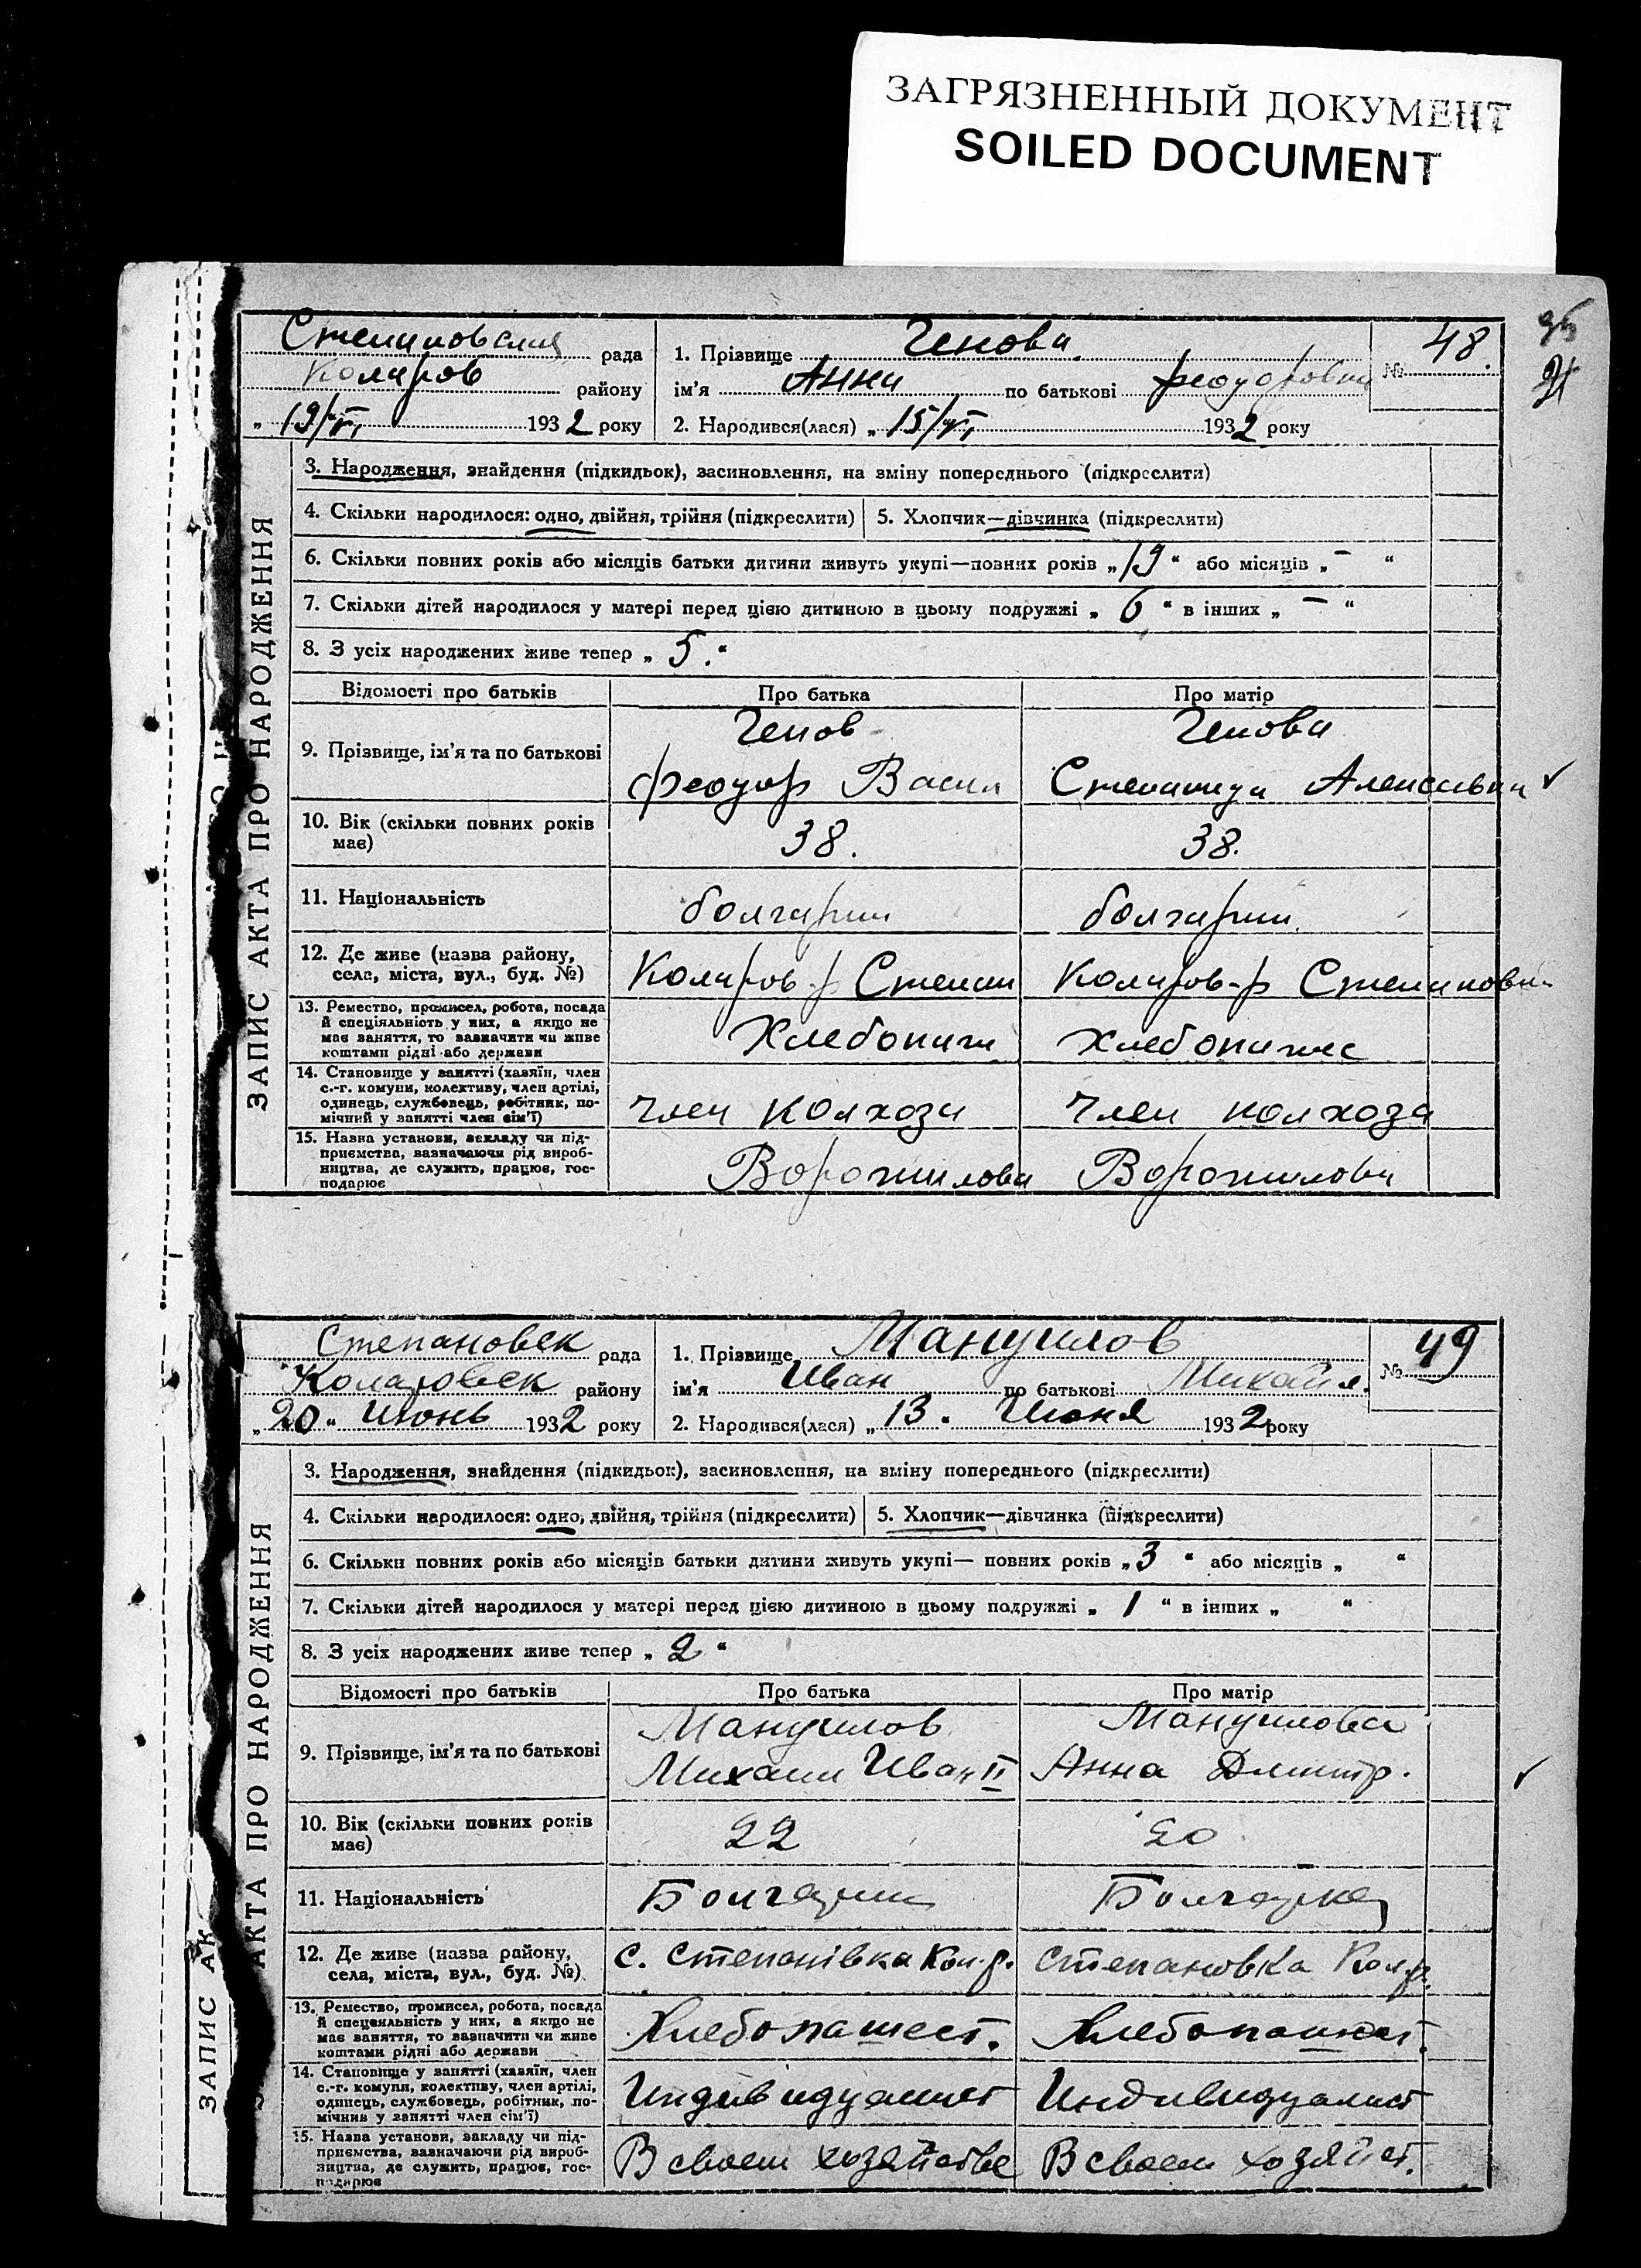 ЗАГРЯЗНЕННЫЙ ДОКУМЕНТ
SOILED DOCUMENT
48.
Степановская рада
Коларов району
„19/VI, 1932 року
1. Прізвище Генова.
ім'я Анна по батькові Феодоровна
№
2. Народився(лася) „15/VI, 1932 року
ЗАПИС АКТА ПРО НАРОДЖЕННЯ
3. Народження, знайдення (підкидьок), засиновлення, на зміну попереднього (підкреслити)
4. Скільки народилося: одно, двійня, трійня (підкреслити)
5. Хлопчик—дівчинка (підкреслити)
6. Скільки повних років або місяців батьки дитини живуть укупі—повних років „19“ або місяців „–“
7. Скільки дітей народилося у матері перед цією дитиною в цьому подружжі „6“ в інших „–“
8. З усіх народжених живе тепер „5.“
Відомості про батьків Про батька Про матір
9. Прізвище, ім'я та по батькові
Генов Генова
Феодор Васил Степанида Алексеевна
10. Вік (скільки повних років має)
38. 38.
11. Національність
болгарин болгарин.
12. Де живе (назва району,
села, міста, вул., буд. №)
Коларов-р Степан Коларов-р Степановка
13. Ремество, промисел, робота, посада
й спеціяльність у них, а якщо не
має заняття, то зазначити чи живе
коштами рідні або держави
Хлебопаш Хлебопашес
14. Становище у занятті (хазяїн, член
с.-г. комуни, колективу, член артілі,
одинець, службовець, робітник, по-
мічний у занятті член сім'ї)
член колхоза член колхоза
15. Назва установи, закладу чи під-
приємства, вазначаючи рід вироб-
ництва, де служить, працює, гос-
подарює
Ворошилова Ворошилова
49
Степановск рада
Коларовск району
„20“ Июнь 1932 року
1. Прізвище Мануилов
ім'я Иван по батькові Михайл.
№
2. Народився(лася) „13“ Июня 1932 року
АКТА ПРО НАРОДЖЕННЯ
ЗАПИС АК
3. Народження, знайдення (підкидьок), засиновлення, на зміну попереднього (підкреслити)
4. Скільки народилося: одно, двійня, трійня (підкреслити)
5. Хлопчик—дівчинка (підкреслити)
6. Скільки повних років або місяців батьки дитини живуть укупі— повних років „3“ або місяців „ “
7. Скільки дітей народилося у матері перед цією дитиною в цьому подружжі „1“ в інших „ “
8. З усіх народжених живе тепер „2“
Відомості про батьків Про батька Про матір
9. Прізвище, ім'я та по батькові
Мануилов Мануилова
Михаил Иван II Анна Дмитр.
10. Вік (скільки повних років має)
22 20
11. Національність
Болгарин Болгарка
12. Де живе (назва району,
села, міста, вул., буд. №)
с. Степанівка Кол.р. Степановка Кол.р.
13. Ремество, промисел, робота, посада
й спеціяльність у них, а якщо не
має заняття, то зазначити чи живе
коштами рідні або держави
Хлебопашест. Хлебопашест.
14. Становище у занятті (хазяїн, член
с.-г. комуни, колективу, член артілі,
одинець, службовець, робітник, по-
мічний у занятті член сім'ї)
Индивидуалист Индивидуалист
15. Назва установи, закладу чи під-
приємства, вазначаючи рід вироб-
ництва, де служить, працює, гос-
подарює
В своем хозяйстве В своем хозяйст.